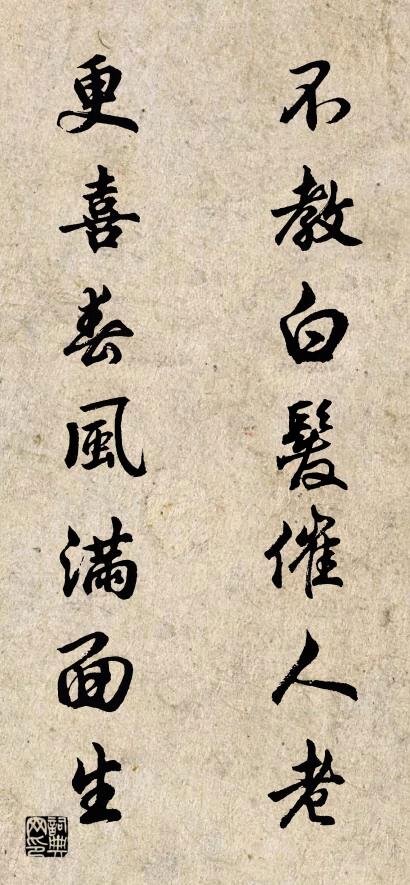 不教白髮催人老
更喜春風滿面生
詞典網印